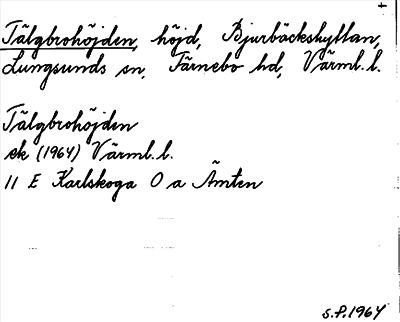 +
Tälgbrohöjden, höjd, Bjurbäckshyttan,
Lungsunds sn, Färnebo hd, Värml. l.
Tälgbrohöjden
ek (1964) Värml. l.
11 E Karlskoga O a Ämten
S.P. 1964